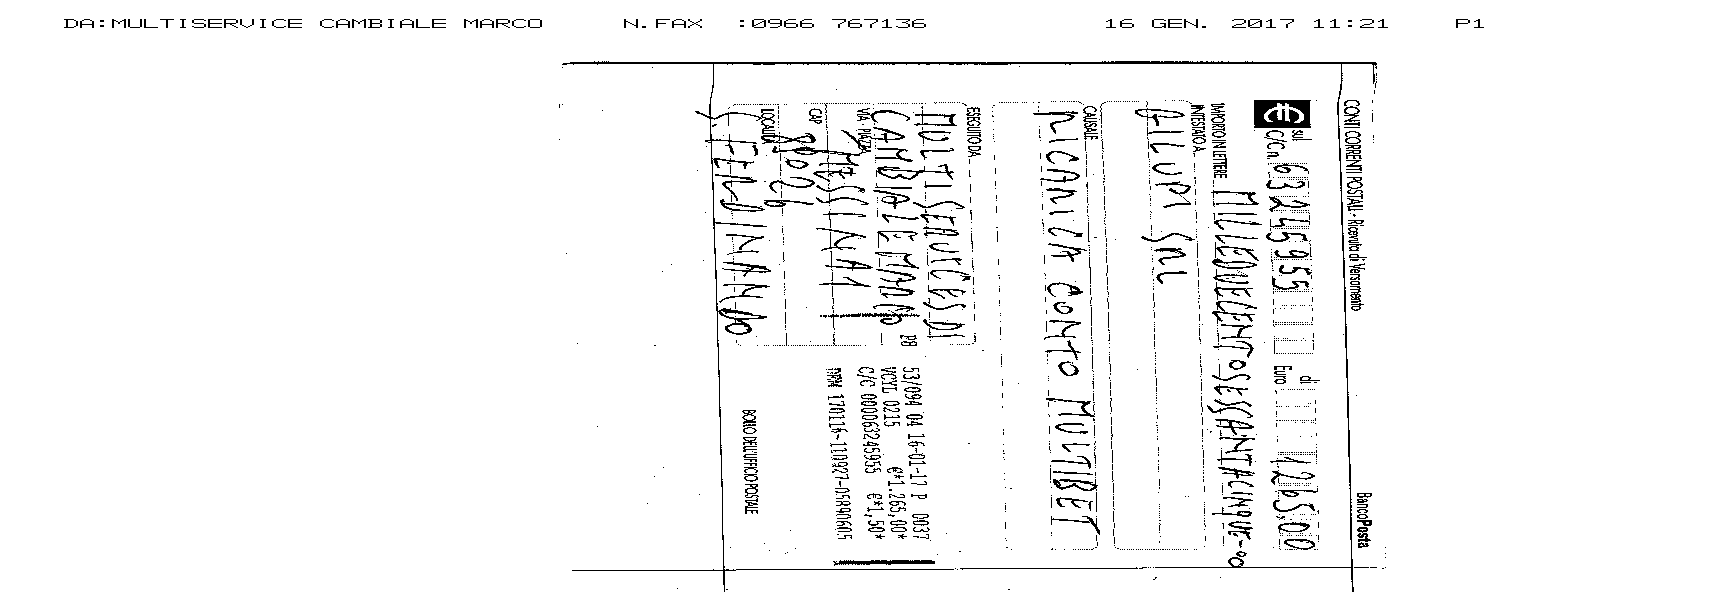 DA:MULTISERVICE CAMBIALE MARCO N.FAX :0966 767136 16 GEN. 2017 11:21 P1
CONTI CORRENTI POSTALI - Ricevuta di Versamento BancoPosta
sul C/C n. 63245955 di Euro 1265,00
IMPORTO IN LETTERE MILLEDUECENTOSESSANTACINQUE-00
INTESTATO A
GILUPI SRL
CAUSALE
RICARICA CONTO MULTIBET
ESEGUITO DA
MULTISERVICES DI
CAMBIALE MARCO
VIA - PIAZZA
MESSINA 1
CAP
89026
LOCALITÀ
S. FERDINANDO
DB
53/094 04 16-01-17 P 0037
VCYL 0215 €*1.265,00*
C/C 000063245955 €*1,50*
170116-110927-05890605
BOLLO DELL'UFFICIO POSTALE